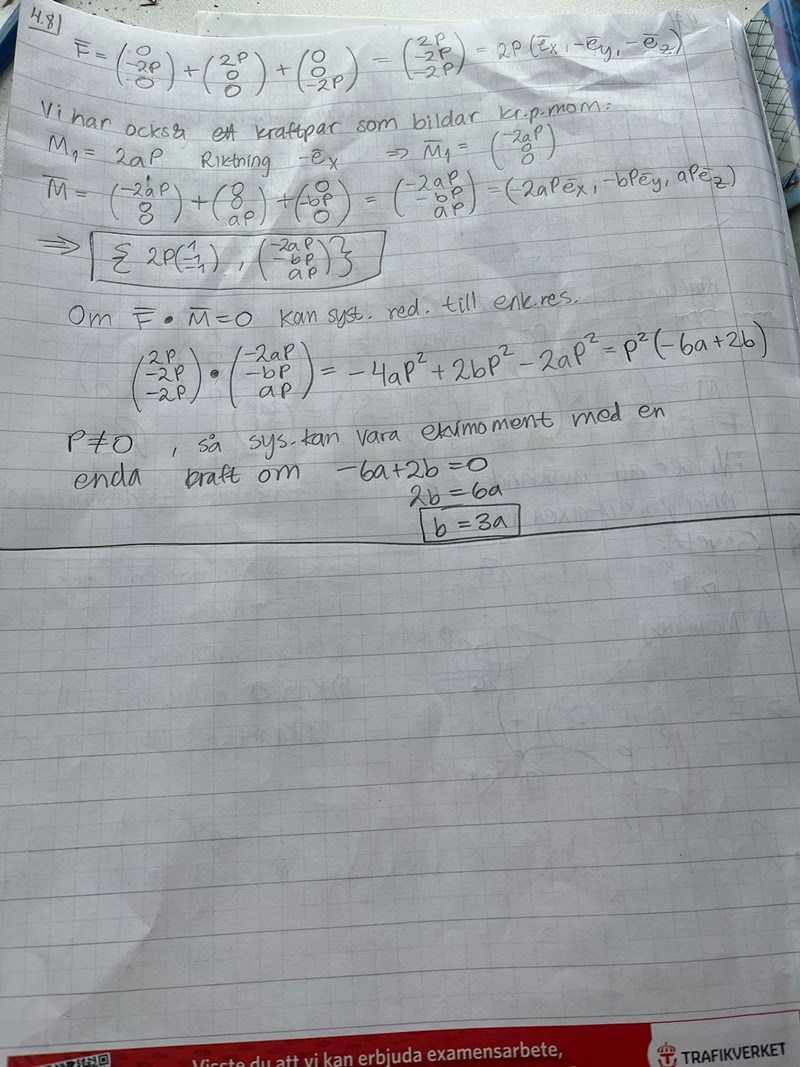 4.8)
F̄ = (0, -2P, 0) + (2P, 0, 0) + (0, 0, -2P) = (2P, -2P, -2P) = 2P(ēx, -ēy, -ēz)
Vi har också ett kraftpar som bildar kr.p.mom:
M₁ = 2aP Riktning -ēx ⇒ M̄₁ = (-2aP, 0, 0)
M̄ = (-2aP, 0, 0) + (0, 0, aP) + (0, -bP, 0) = (-2aP, -bP, aP) = (-2aPēx, -bPēy, aPēz)
⇒ { 2P(1, -1, -1), (-2aP, -bP, aP) }
Om F̄ • M̄ = 0 kan syst. red. till enk.res.
(2P, -2P, -2P) • (-2aP, -bP, aP) = -4aP² + 2bP² - 2aP² = P²(-6a+2b)
P≠0, så sys. kan vara ekvimoment med en
enda kraft om -6a+2b = 0
2b = 6a
b = 3a
Visste du att vi kan erbjuda examensarbete,
TRAFIKVERKET